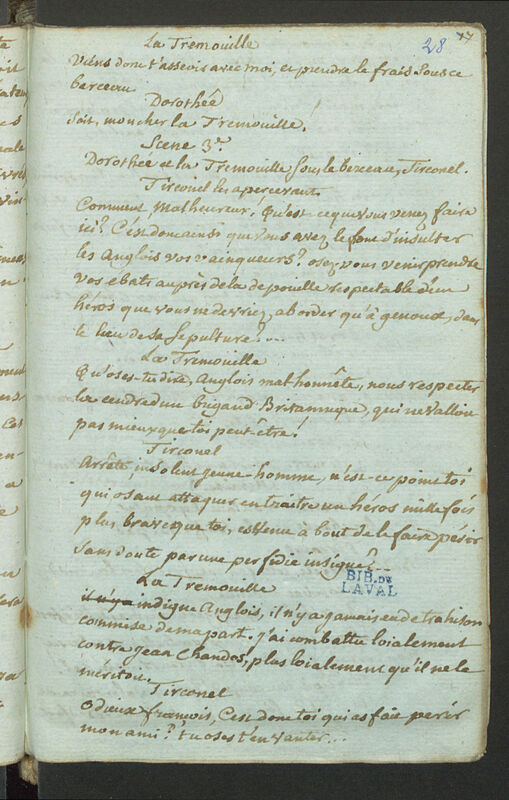 28 77
La Tremouille
Viens donc t'asseoir avec moi, et prendre le frais sous ce
berceau
Dorothée
Soit, mon cher la Tremouille.
Scene 3e.
Dorothée et la Tremouille sous le berceau, Tirconel.
Tirconel les apercevant.
Comment, malheureux! Qu'est-ce que vous venez faire
ici? C'est donc ainsi que vous avez le front d'insulter
les Anglois vos vainqueurs? osez-vous venir prendre
vos ebats auprès de la depouille respectable d'un
héros que vous ne devriez aborder qu'à genoux, dans
le lieu de sa sepulture....
La Tremouille
Qu'oses-tu dire, Anglois malhonnête, nous respecter
la cendre d'un brigand Britannique, qui ne valloit
pas mieux que toi peut-être!
Tirconel
Arrête, insolent jeune-homme, n'est-ce point toi
qui osant attaquer en traitre un héros mille fois
plus brave que toi, est venu à bout de le faire périr
sans doute par une perfidie insigne?...
La Tremouille
il n'y a indigne Anglois, il n'y a jamais eu de trahison
commise de ma part. j'ai combattu loialement
contre jean Chandos, plus loialement qu'il ne le
méritoit.
Tirconel
Odieux françois, C'est donc toi qui as fait périr
mon ami? tu oses t'en vanter...
BIB. DE
LAVAL